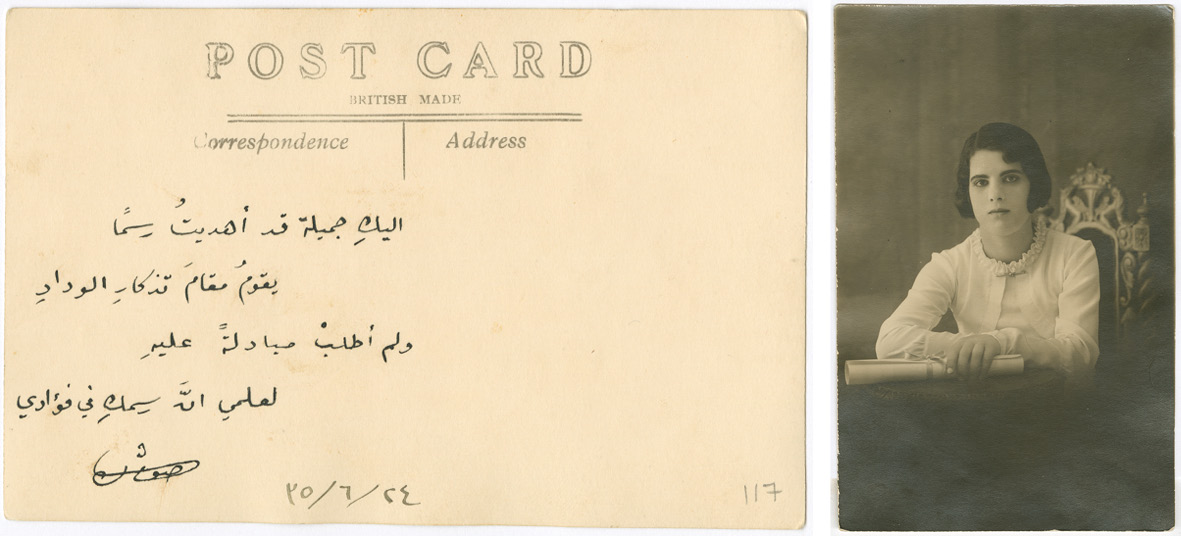 POST CARD
BRITISH MADE
Correspondence
Address
اليكِ جميلة قد أهديتُ رسمًا
يقومُ مقامَ تذكارِ الودادِ
ولم أطلبْ مبادلةً عليهِ
لعلمي انَّ رسمكِ في فؤادي
٣٥/٦/٢٤
117